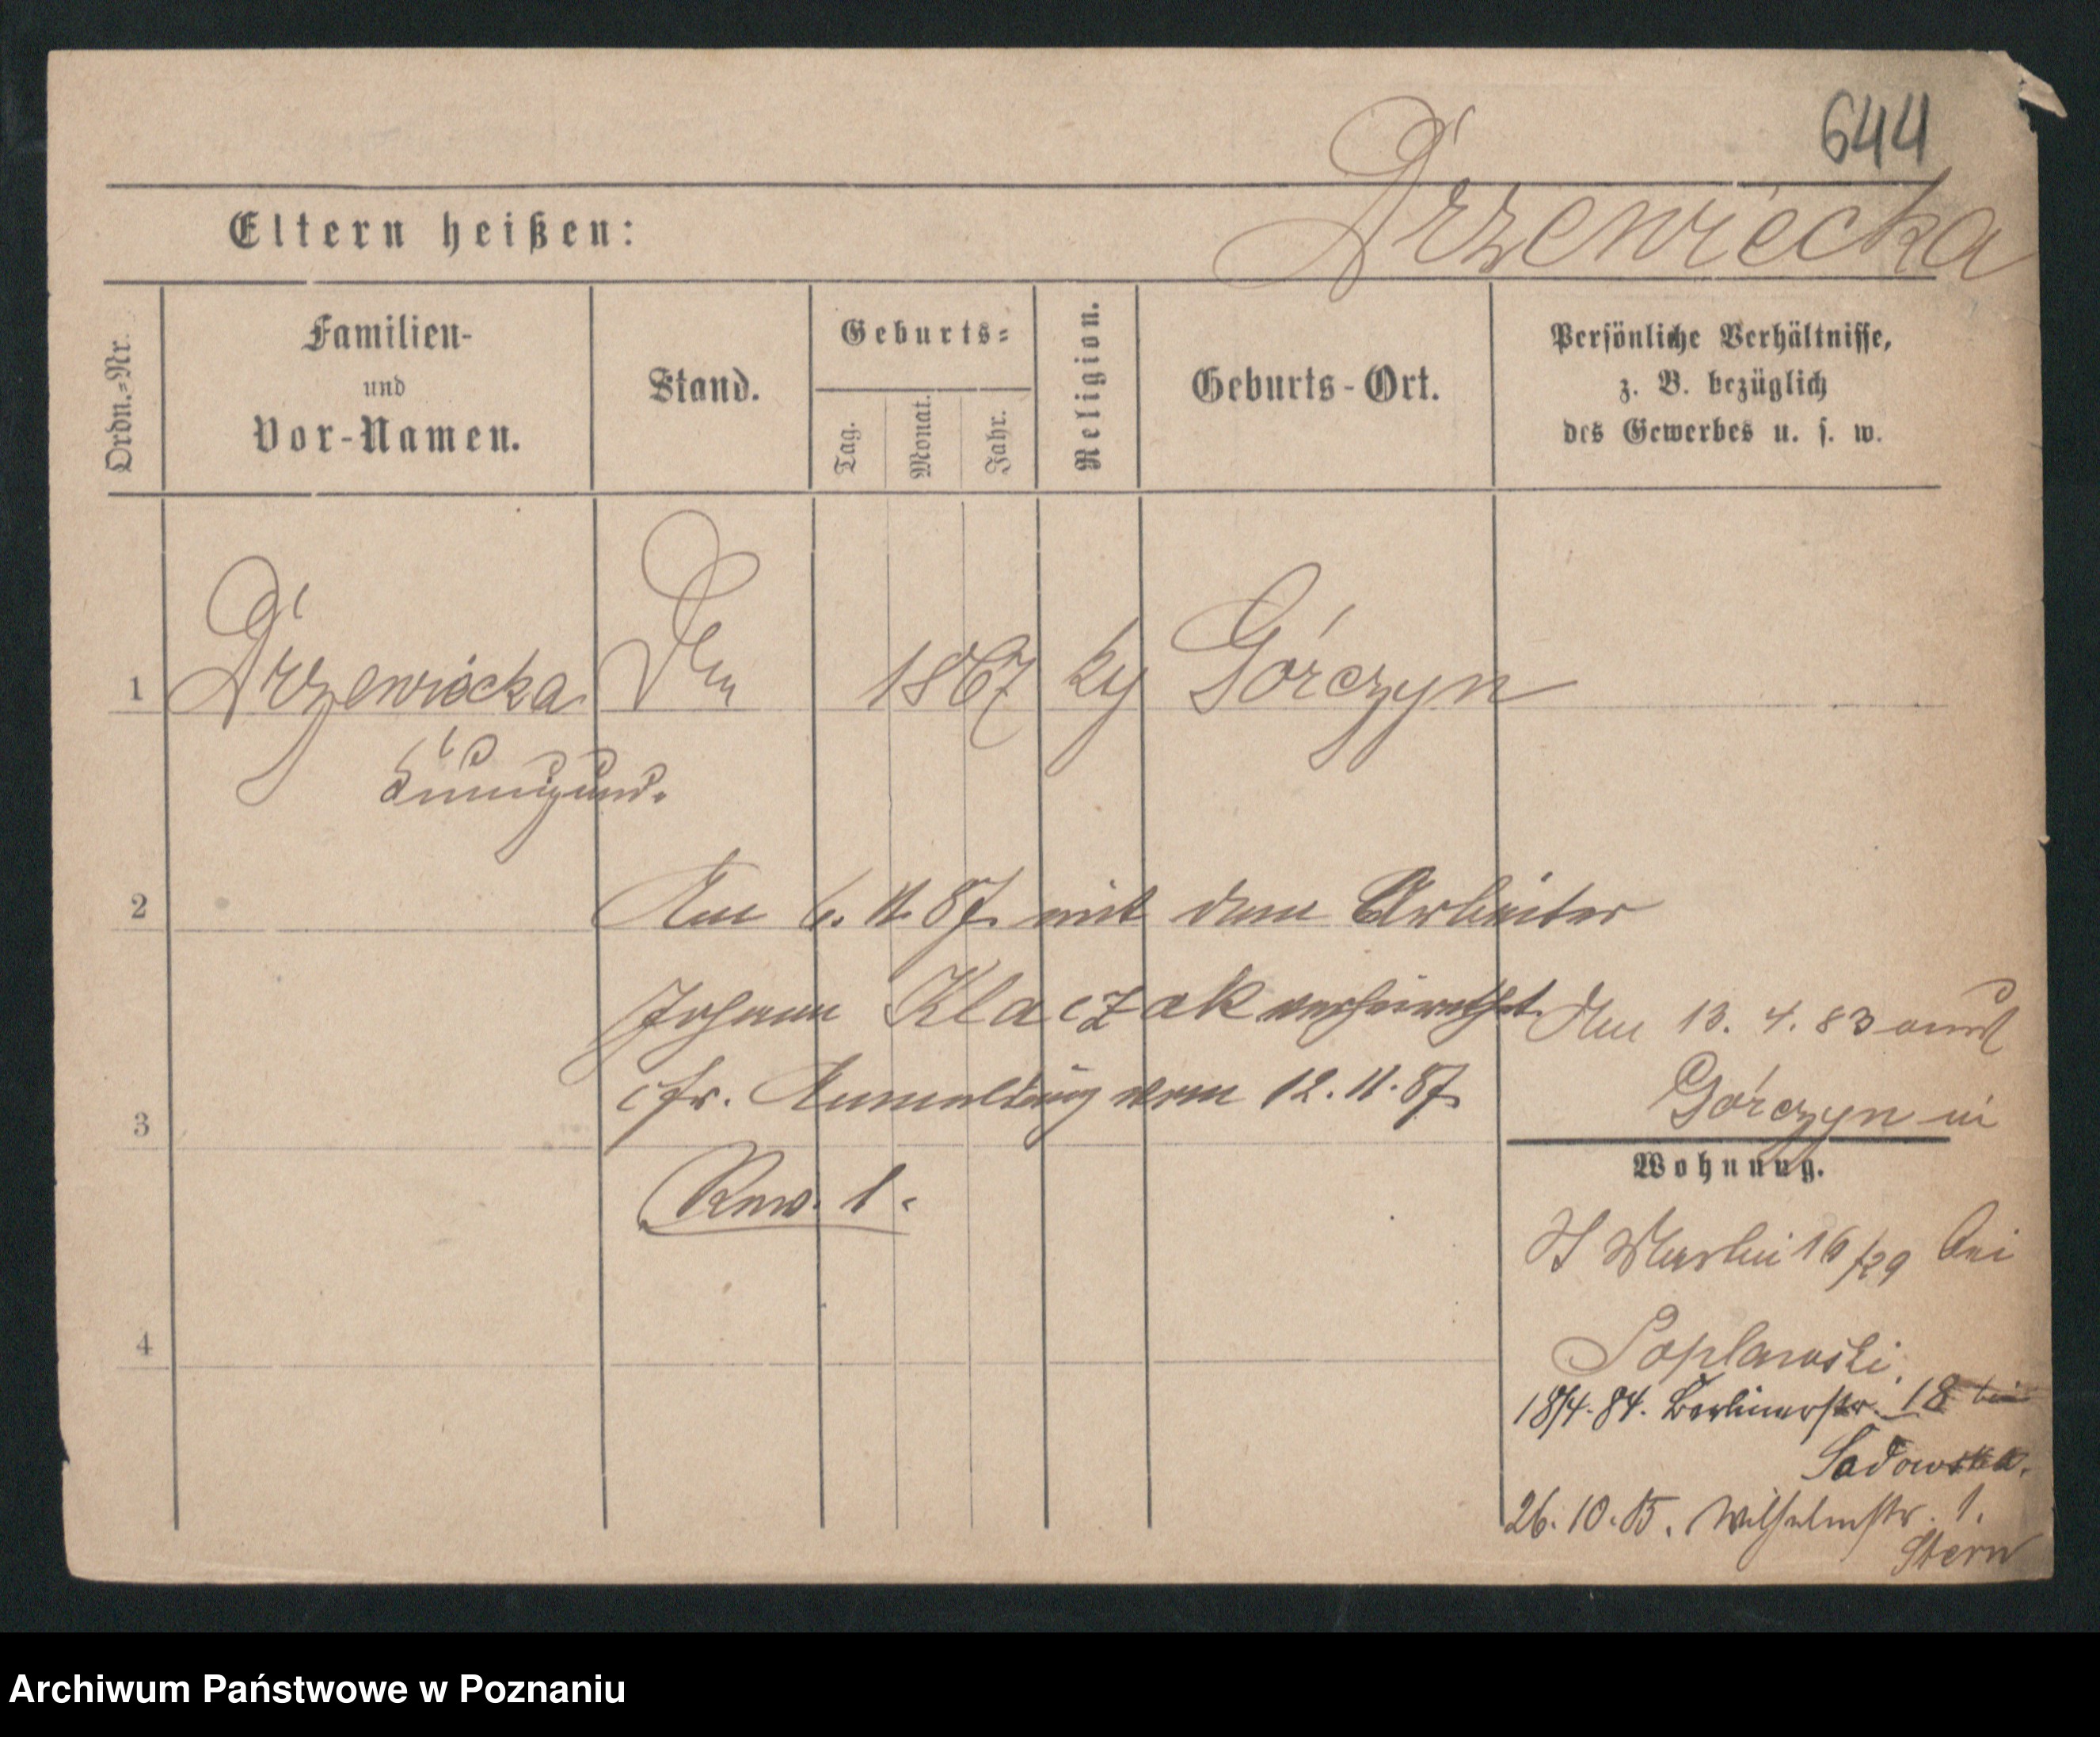 644
Drzewiecka
Eltern heißen:
Ordn.-Nr.
Familien-
und
Vor-Namen.
Stand.
Geburts-
Tag.
Monat.
Jahr.
Religion.
Geburts-Ort.
Persönliche Verhältnisse,
z. B. bezüglich
des Gewerbes u. s. w.
1 Drzewiecka 1867 Górczyn
Kunigund.
2 Am 6. 11. 87. mit dem Arbeiter
Johann Klaczak verheirathet.
cfr. Anmeldung vom 12. 11. 87.
Am 13. 4. 83
Górczyn in
3
Wohnung.
16/29 bei
Poplawski.
4
18/4. 84. Berlinerstr. 18 bei
Sadowska.
26. 10. 85. Wilhelmstr. 1.
Stern
Archiwum Państwowe w Poznaniu